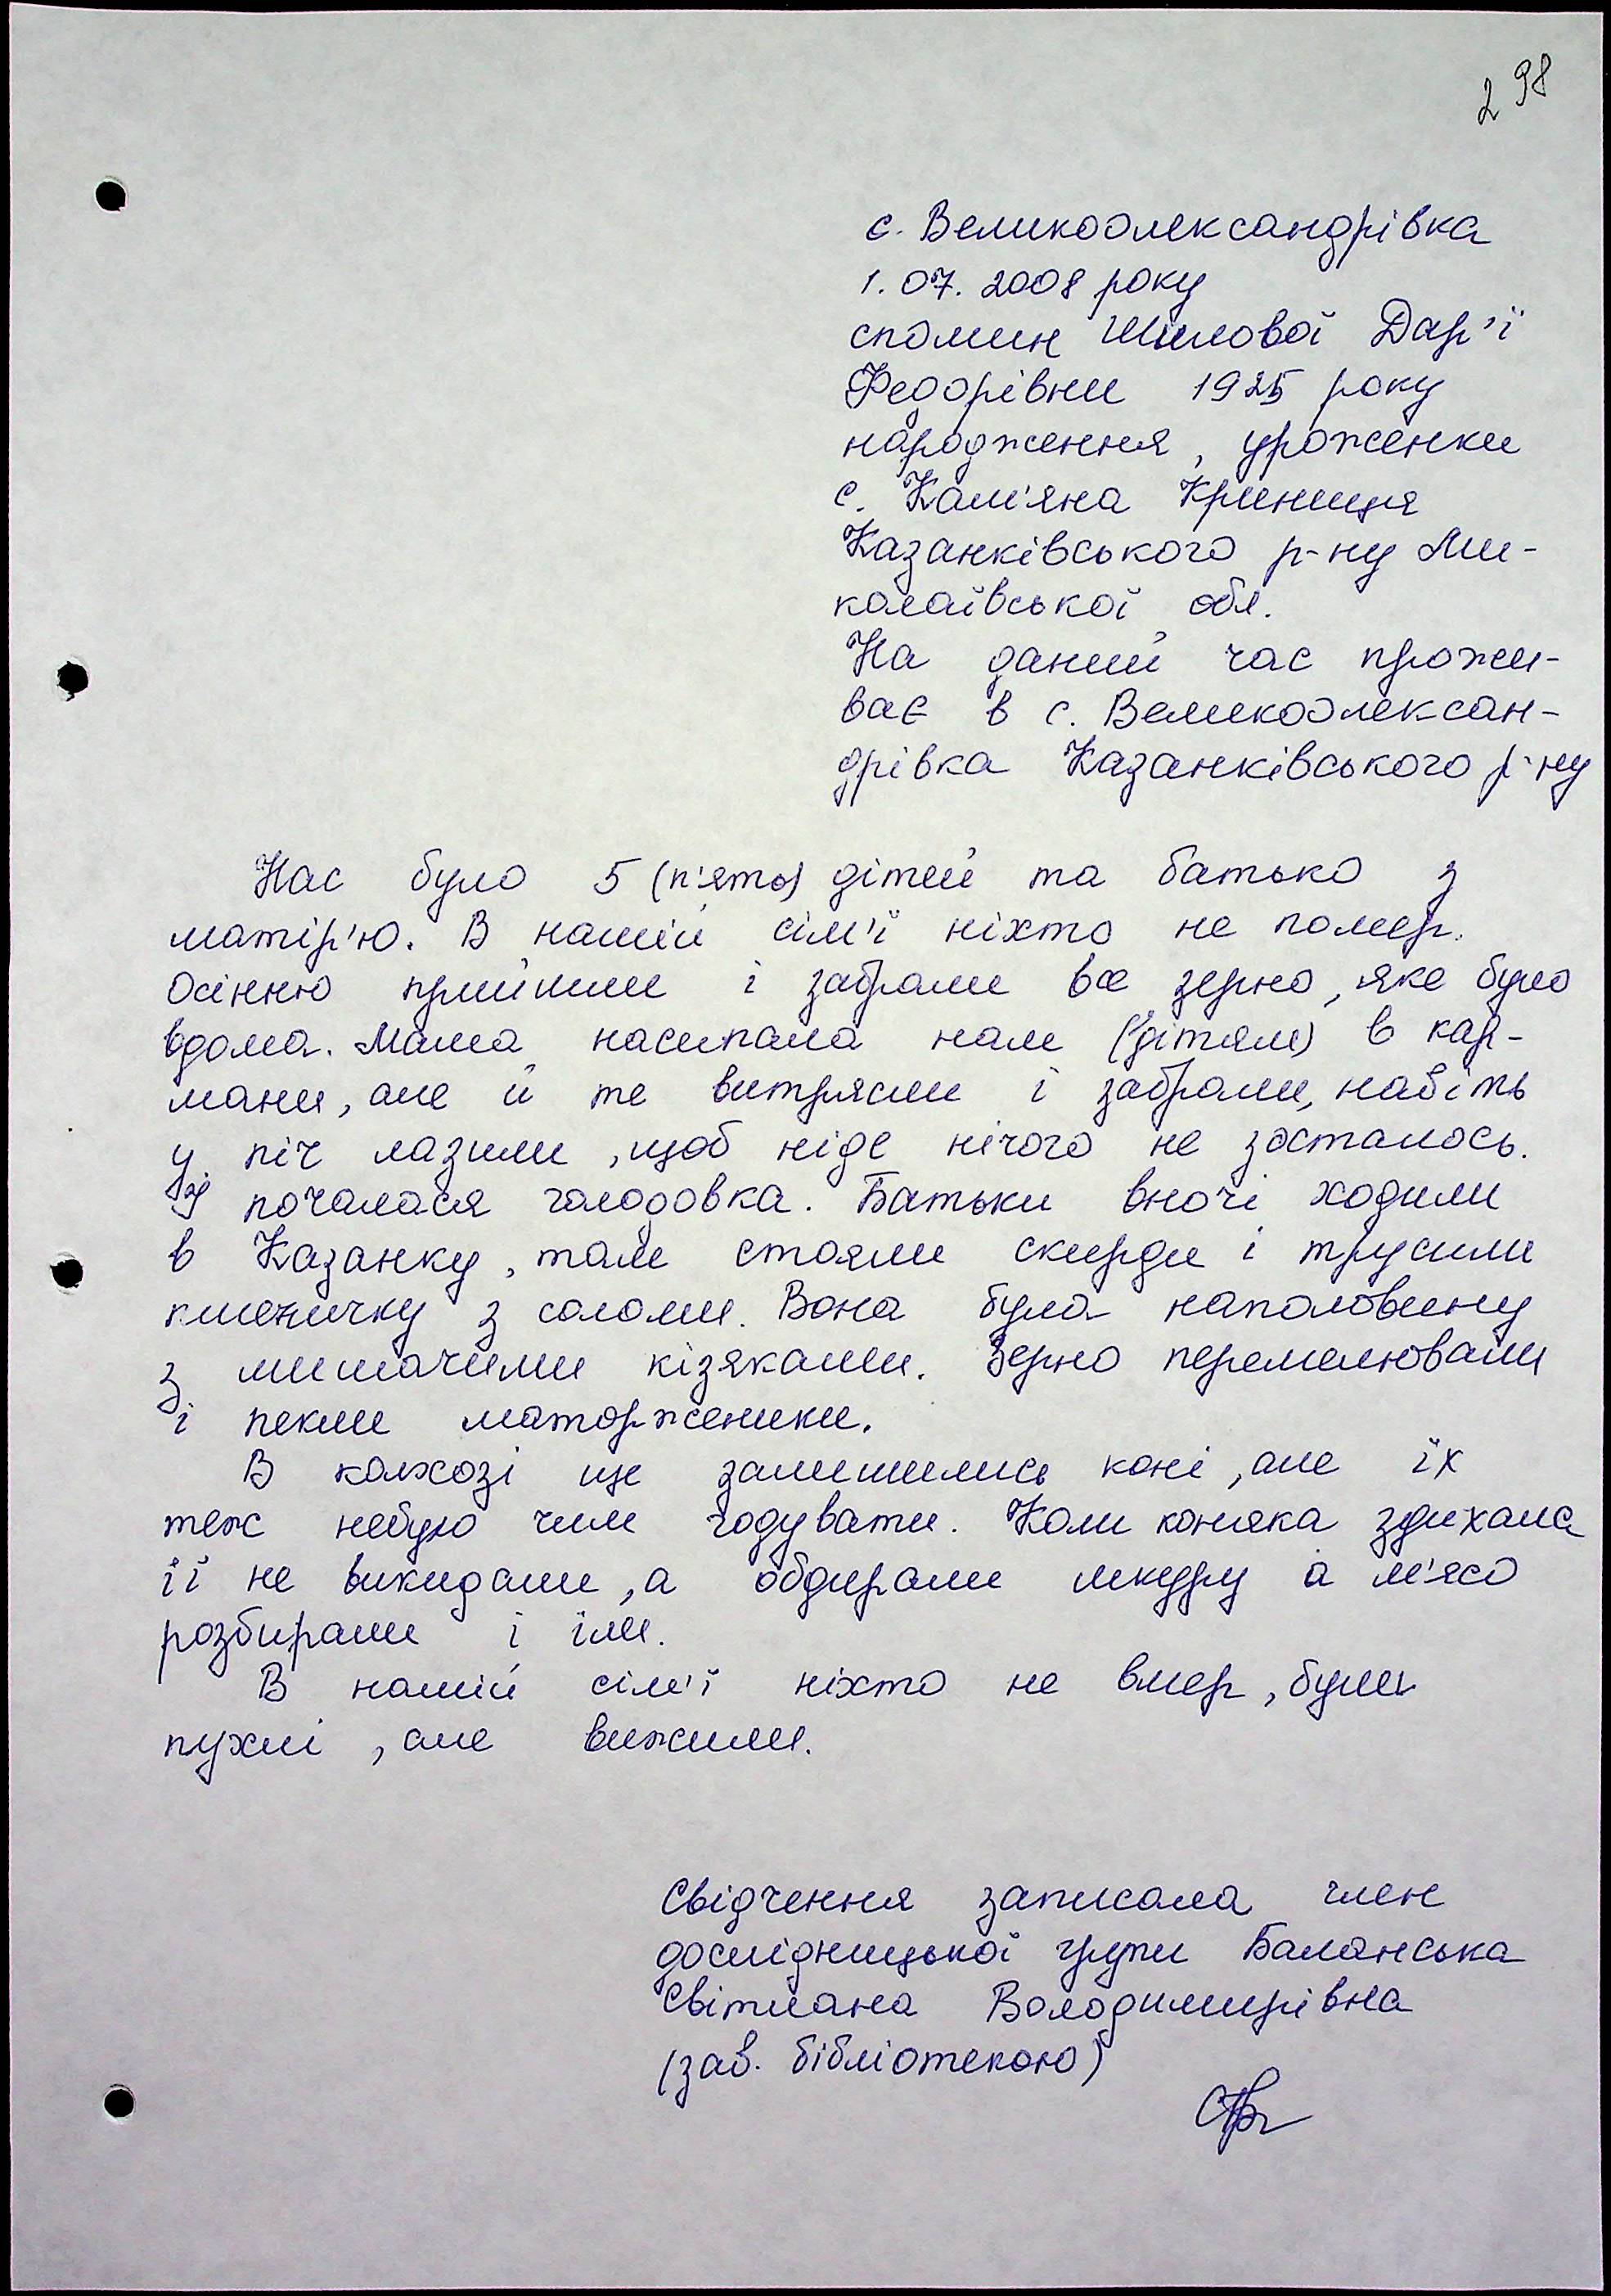 298
с. Великоолександрівка
1. 07. 2008 року
спомин Шилової Дар'ї
Федорівни 1925 року
народження, уроженки
с. Кам'яна Криниця
Казанківського р-ну Ми-
колаївської обл.
На даний час прожи-
ває в с. Великоолексан-
дрівка Казанківського р-ну
Нас було 5 (п'ять) дітей та батько з
матір'ю. В нашій сім'ї ніхто не помер.
Осінню прийшли і забрали все зерно, яке було
вдома. Мама насипала нам (дітям) в кар-
мани, але й те витрясли і забрали, навіть
у піч лазили, щоб ніде нічого не зосталось.
І почалася голодовка. Батьки вночі ходили
в Казанку, там стояли скирди і трусили
пшеничку з соломи. Вона була наполовину
з мишачими кізяками. Зерно перемелювали
і пекли маторженики.
В колхозі ще залишились коні, але їх
теж небуло чим годувати. Коли коняка здихала
її не викидали, а обдирали шкуру а м'ясо
розбирали і їли.
В нашій сім'ї ніхто не вмер, були
пухлі, але вижили.
Свідчення записала член
дослідницької групи Баланська
Світлана Володимирівна
(зав. бібліотекою)